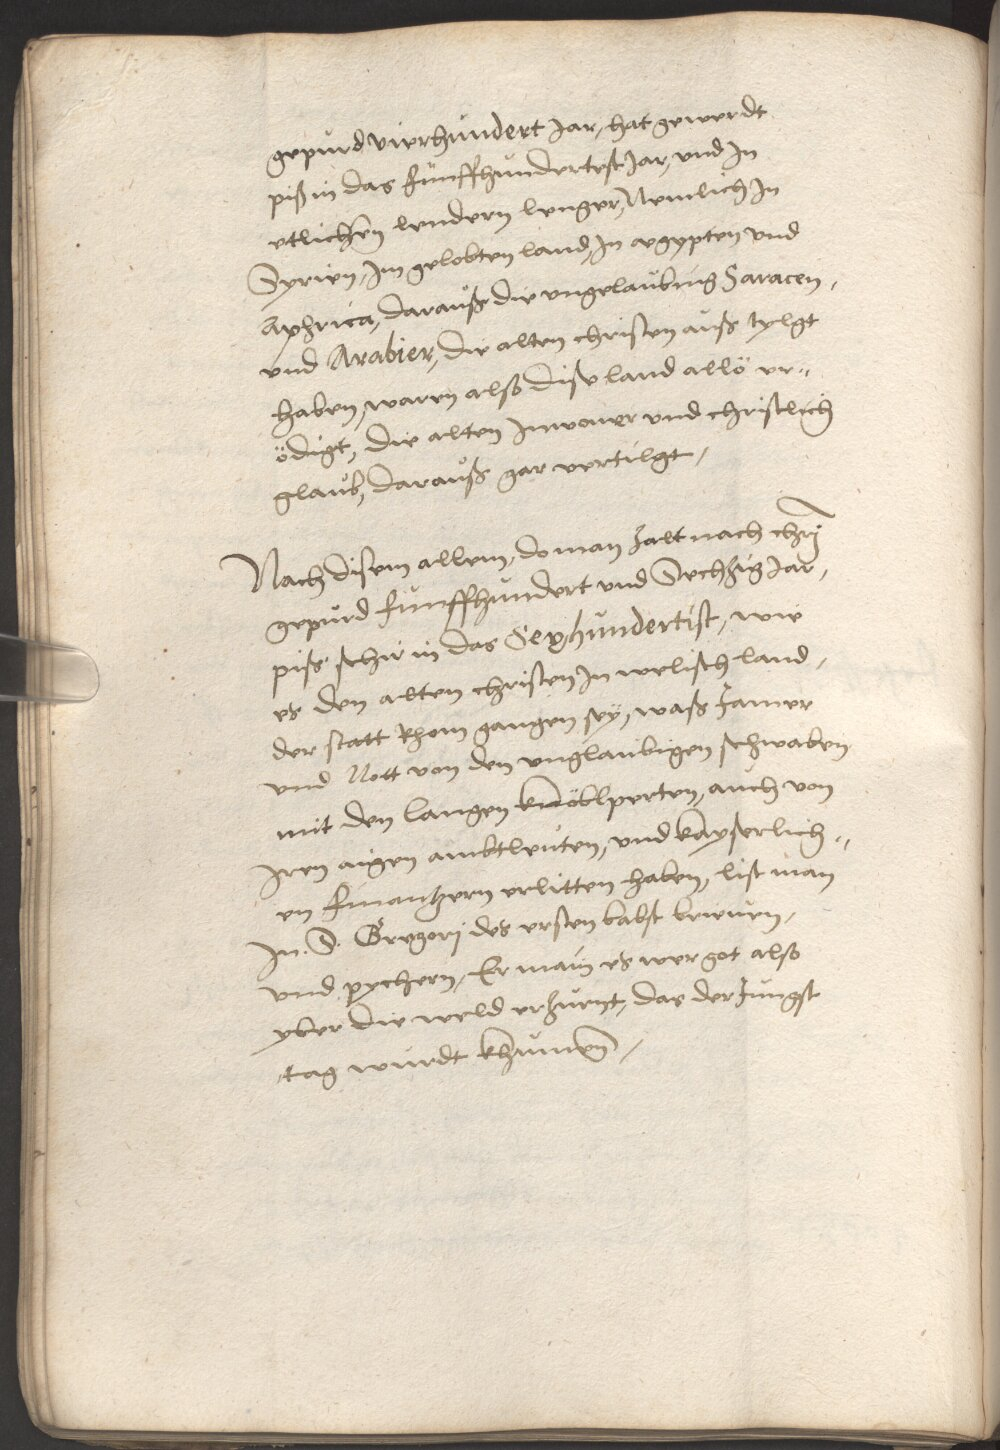 gepurd vierhundert Jar, hat gewerdt
piß in das funffhundertest Jar, vnd In
etlichen lendern lenger, Nemlich In
Syrien, Im gelobten land, In egypten vnd
Aphrica, darauß die vngelaubing Saracen,
vnd Arabier, die alten christen auß tylgt
haben, waren also dise land allö er„
ödigt, die alten Inwoner vnd christlich
glaub, darauß gar vertilgt,
Nach disem allem, do man zalt nach chrj
gepurd funffhundert vnd Sechzig Jar,
piß schir in das Sexhundertist, wie
es den alten christen In welisch land,
der statt Rhom gangen sey, waß Jamer
vnd Nott von den vnglaubigen schwaben
mit den langen knöblperten, auch von
Iren aigen ambtleuten, vnd kayserlich„
en finantzern erlitten haben, list man
In S. Gregorj des ersten babst brieuen,
vnd pychern, Er main es wer got also
yber die weld erzurnt, das der Jungst
tag wurdt khumen,